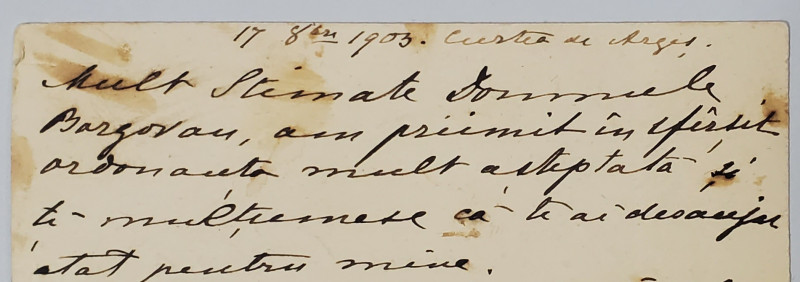 17 8bre 1903. Curtea de Argeș.
Mult Stimate Domnule
Borgovan, am priimit în sfîrșit
ordonanța mult așteptată și
ți mulțumesc că te ai deranjat
atat pentru mine.